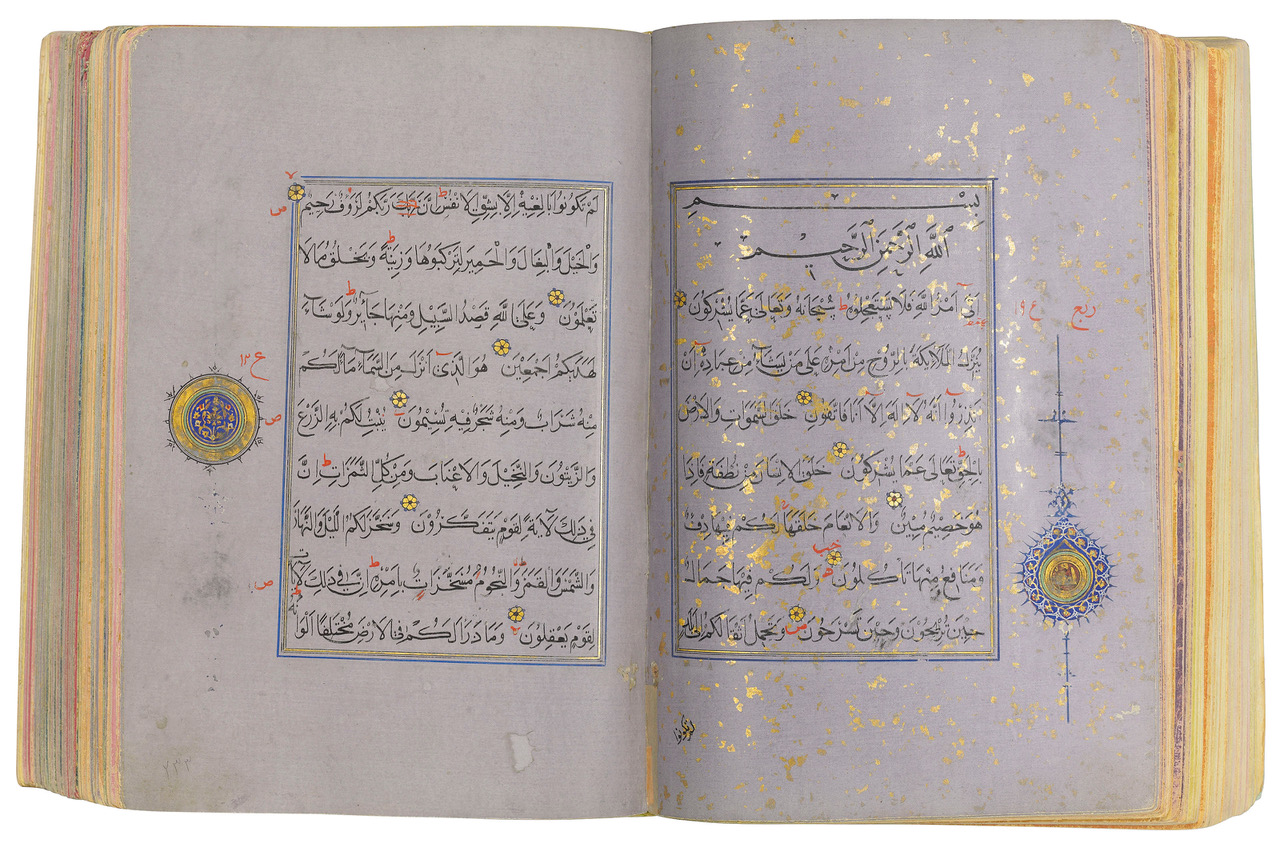 بسم
الله الرحمن الرحيم
اتى امر الله فلا تستعجلوه ط سبحانه وتعالى عما يشركون
ربع
ع ٩
ينزل الملائكة بالروح من امره على من يشاء من عباده ان
انذروا انه لا اله الا انا فاتقون خلق السموات والارض
بالحق تعالى عما يشركون خلق الانسان من نطفة فاذا
هو خصيم مبين والانعام خلقها لكم فيها دفء
ومنافع ومنها تأكلون ولكم فيها جمال
حين تريحون وحين تسرحون ص وتحمل اثقالكم الى بلد
لم تكونوا
٧
لم تكونوا بالغيه الا بشق الانفس ط ان ربكم لرؤف رحيم
ص
والخيل والبغال والحمير لتركبوها وزينة ط ويخلق ما لا
تعلمون وعلى الله قصد السبيل ومنها جائر ط ولو شاء
لهديكم اجمعين هو الذي انزل من السماء ماء لكم
ع ١٢
منه شراب ومنه شجر فيه تسيمون ينبت لكم به الزرع
ص
والزيتون والنخيل والاعناب ومن كل الثمرات ط ان
في ذلك لاية لقوم يتفكرون وسخر لكم الليل والنهار
والشمس والقمر ط والنجوم مسخرات بامره ط ان في ذلك لايات
ص
لقوم يعقلون وما ذرا لكم في الارض مختلفا الوا